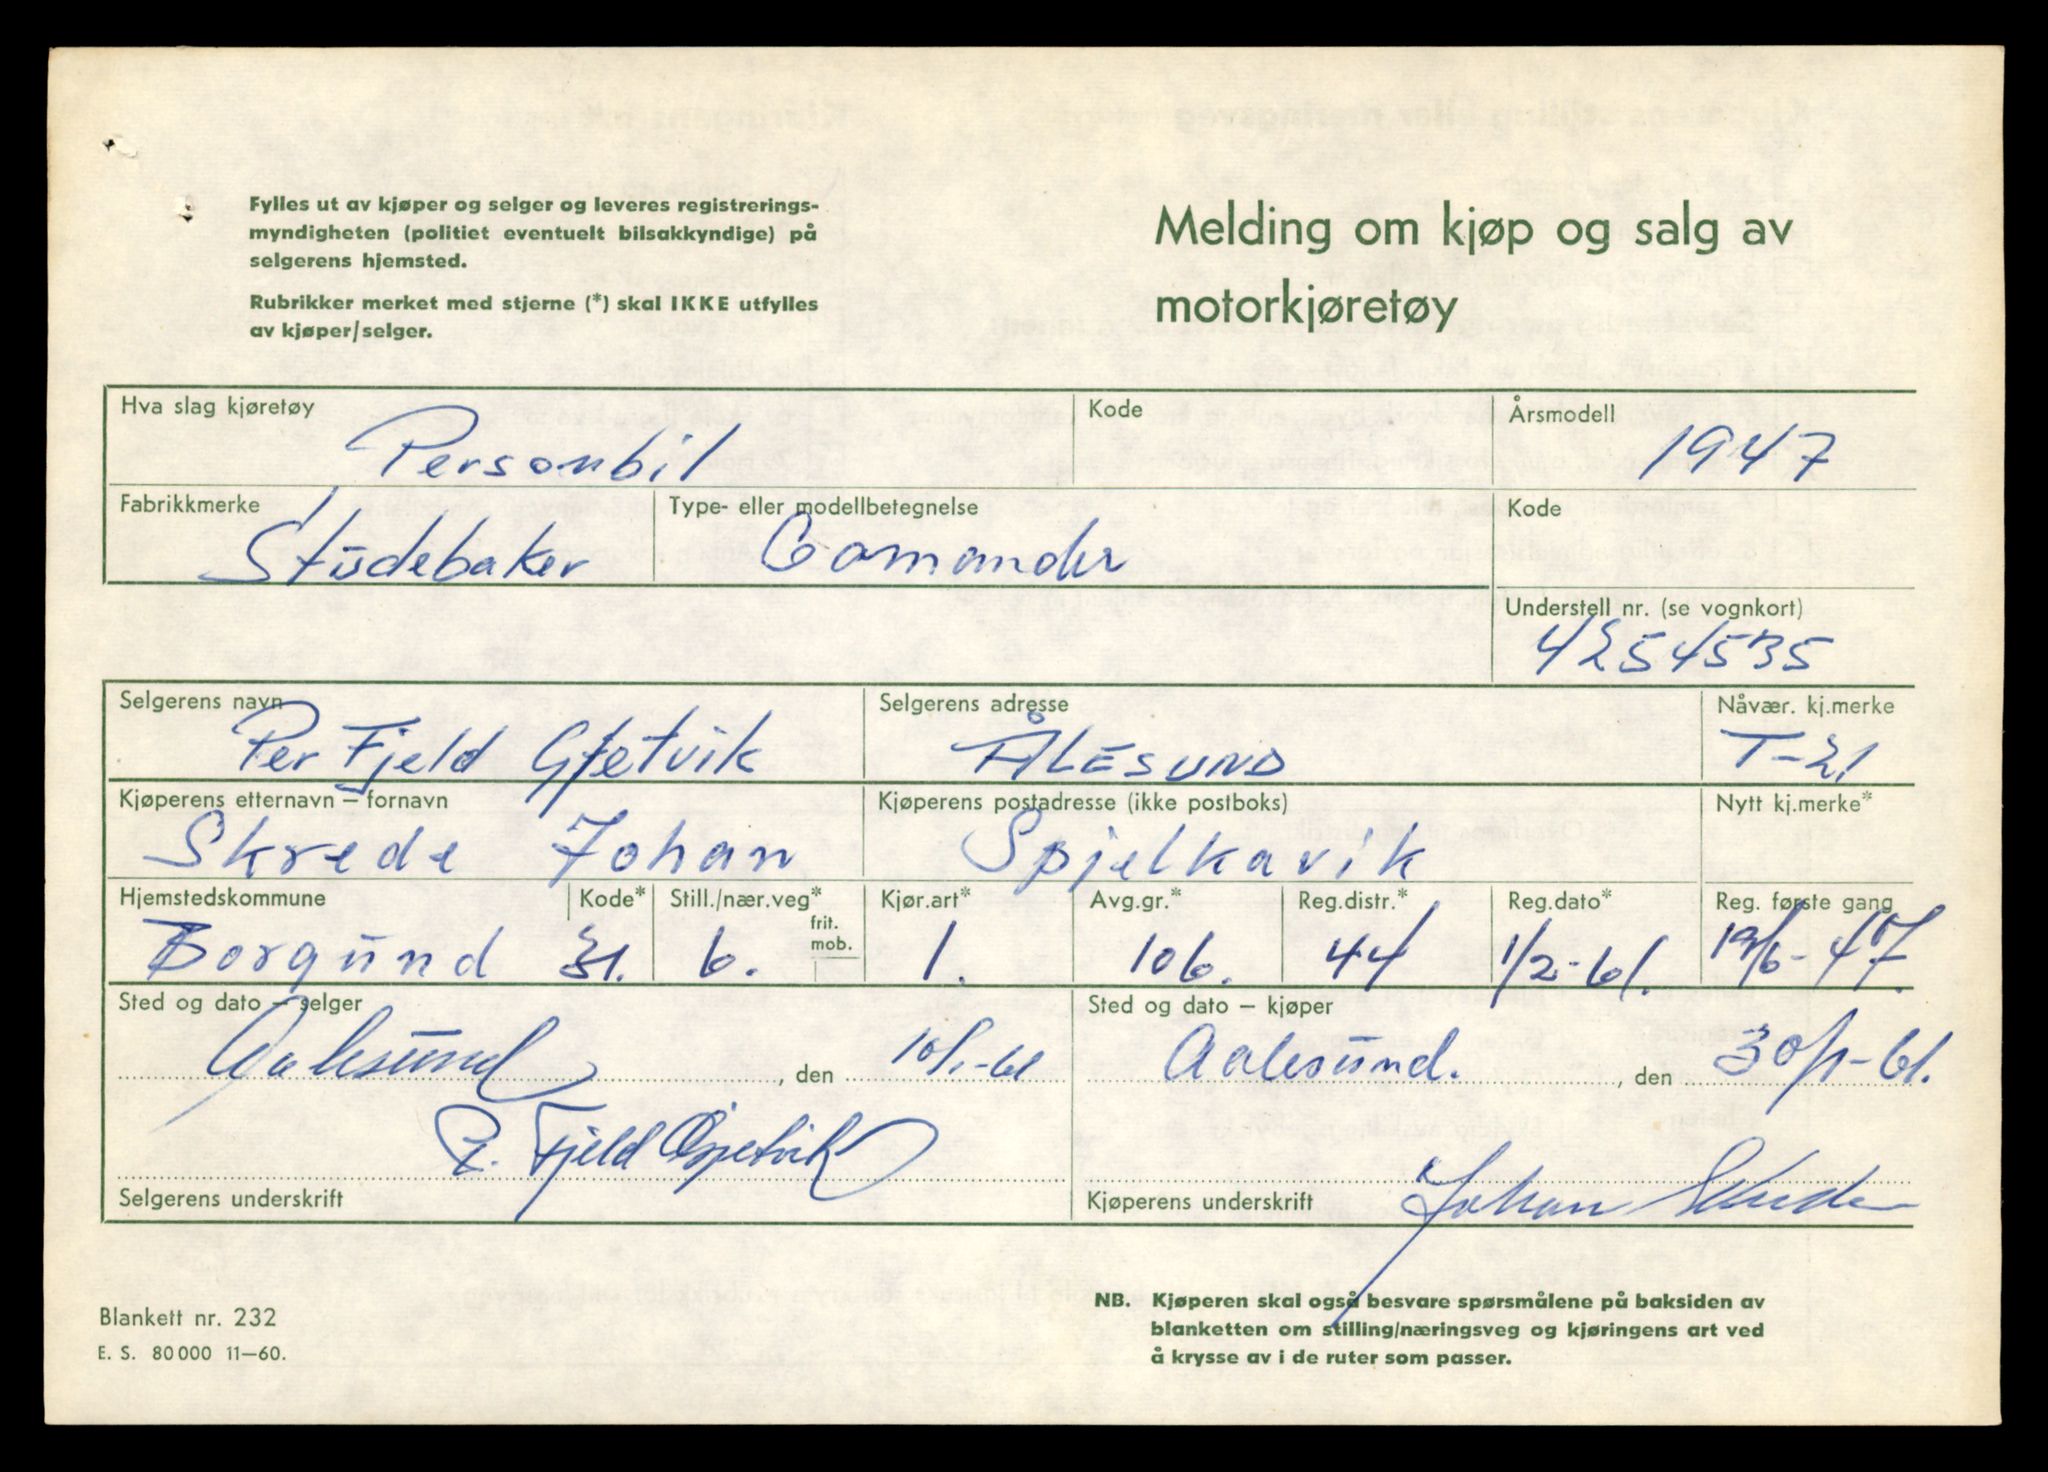 Fylles ut av kjøper og selger og leveres registrerings-
myndigheten (politiet eventuelt bilsakkyndige) på
selgerens hjemsted.
Rubrikker merket med stjerne (*) skal IKKE utfylles
av kjøper/selger.
Melding om kjøp og salg av
motorkjøretøy
Hva slag kjøretøy Kode Årsmodell
Personbil 1947
Fabrikkmerke Type- eller modellbetegnelse Kode
Studebaker Comander
Understell nr. (se vognkort)
4254535
Selgerens navn Selgerens adresse Nåvær. kj.merke
Per Fjeld Gjetvik ÅLESUND T-21
Kjøperens etternavn – fornavn Kjøperens postadresse (ikke postboks) Nytt kj.merke*
Skrede Johan Spjelkavik
Hjemstedskommune Kode* Still./nær.veg* frit. mob. Kjør.art* Avg.gr.* Reg.distr.* Reg.dato* Reg. første gang
Borgund 31. 6. 1. 106. 44 1/2-61. 19/6-47.
Sted og dato – selger Sted og dato – kjøper
Aalesund, den 10/1-61 Aalesund., den 30/1-61.
P. Fjeld Gjetvik Johan Skrede
Selgerens underskrift Kjøperens underskrift
Blankett nr. 232
E. S. 80 000 11–60.
NB. Kjøperen skal også besvare spørsmålene på baksiden av
blanketten om stilling/næringsveg og kjøringens art ved
å krysse av i de ruter som passer.